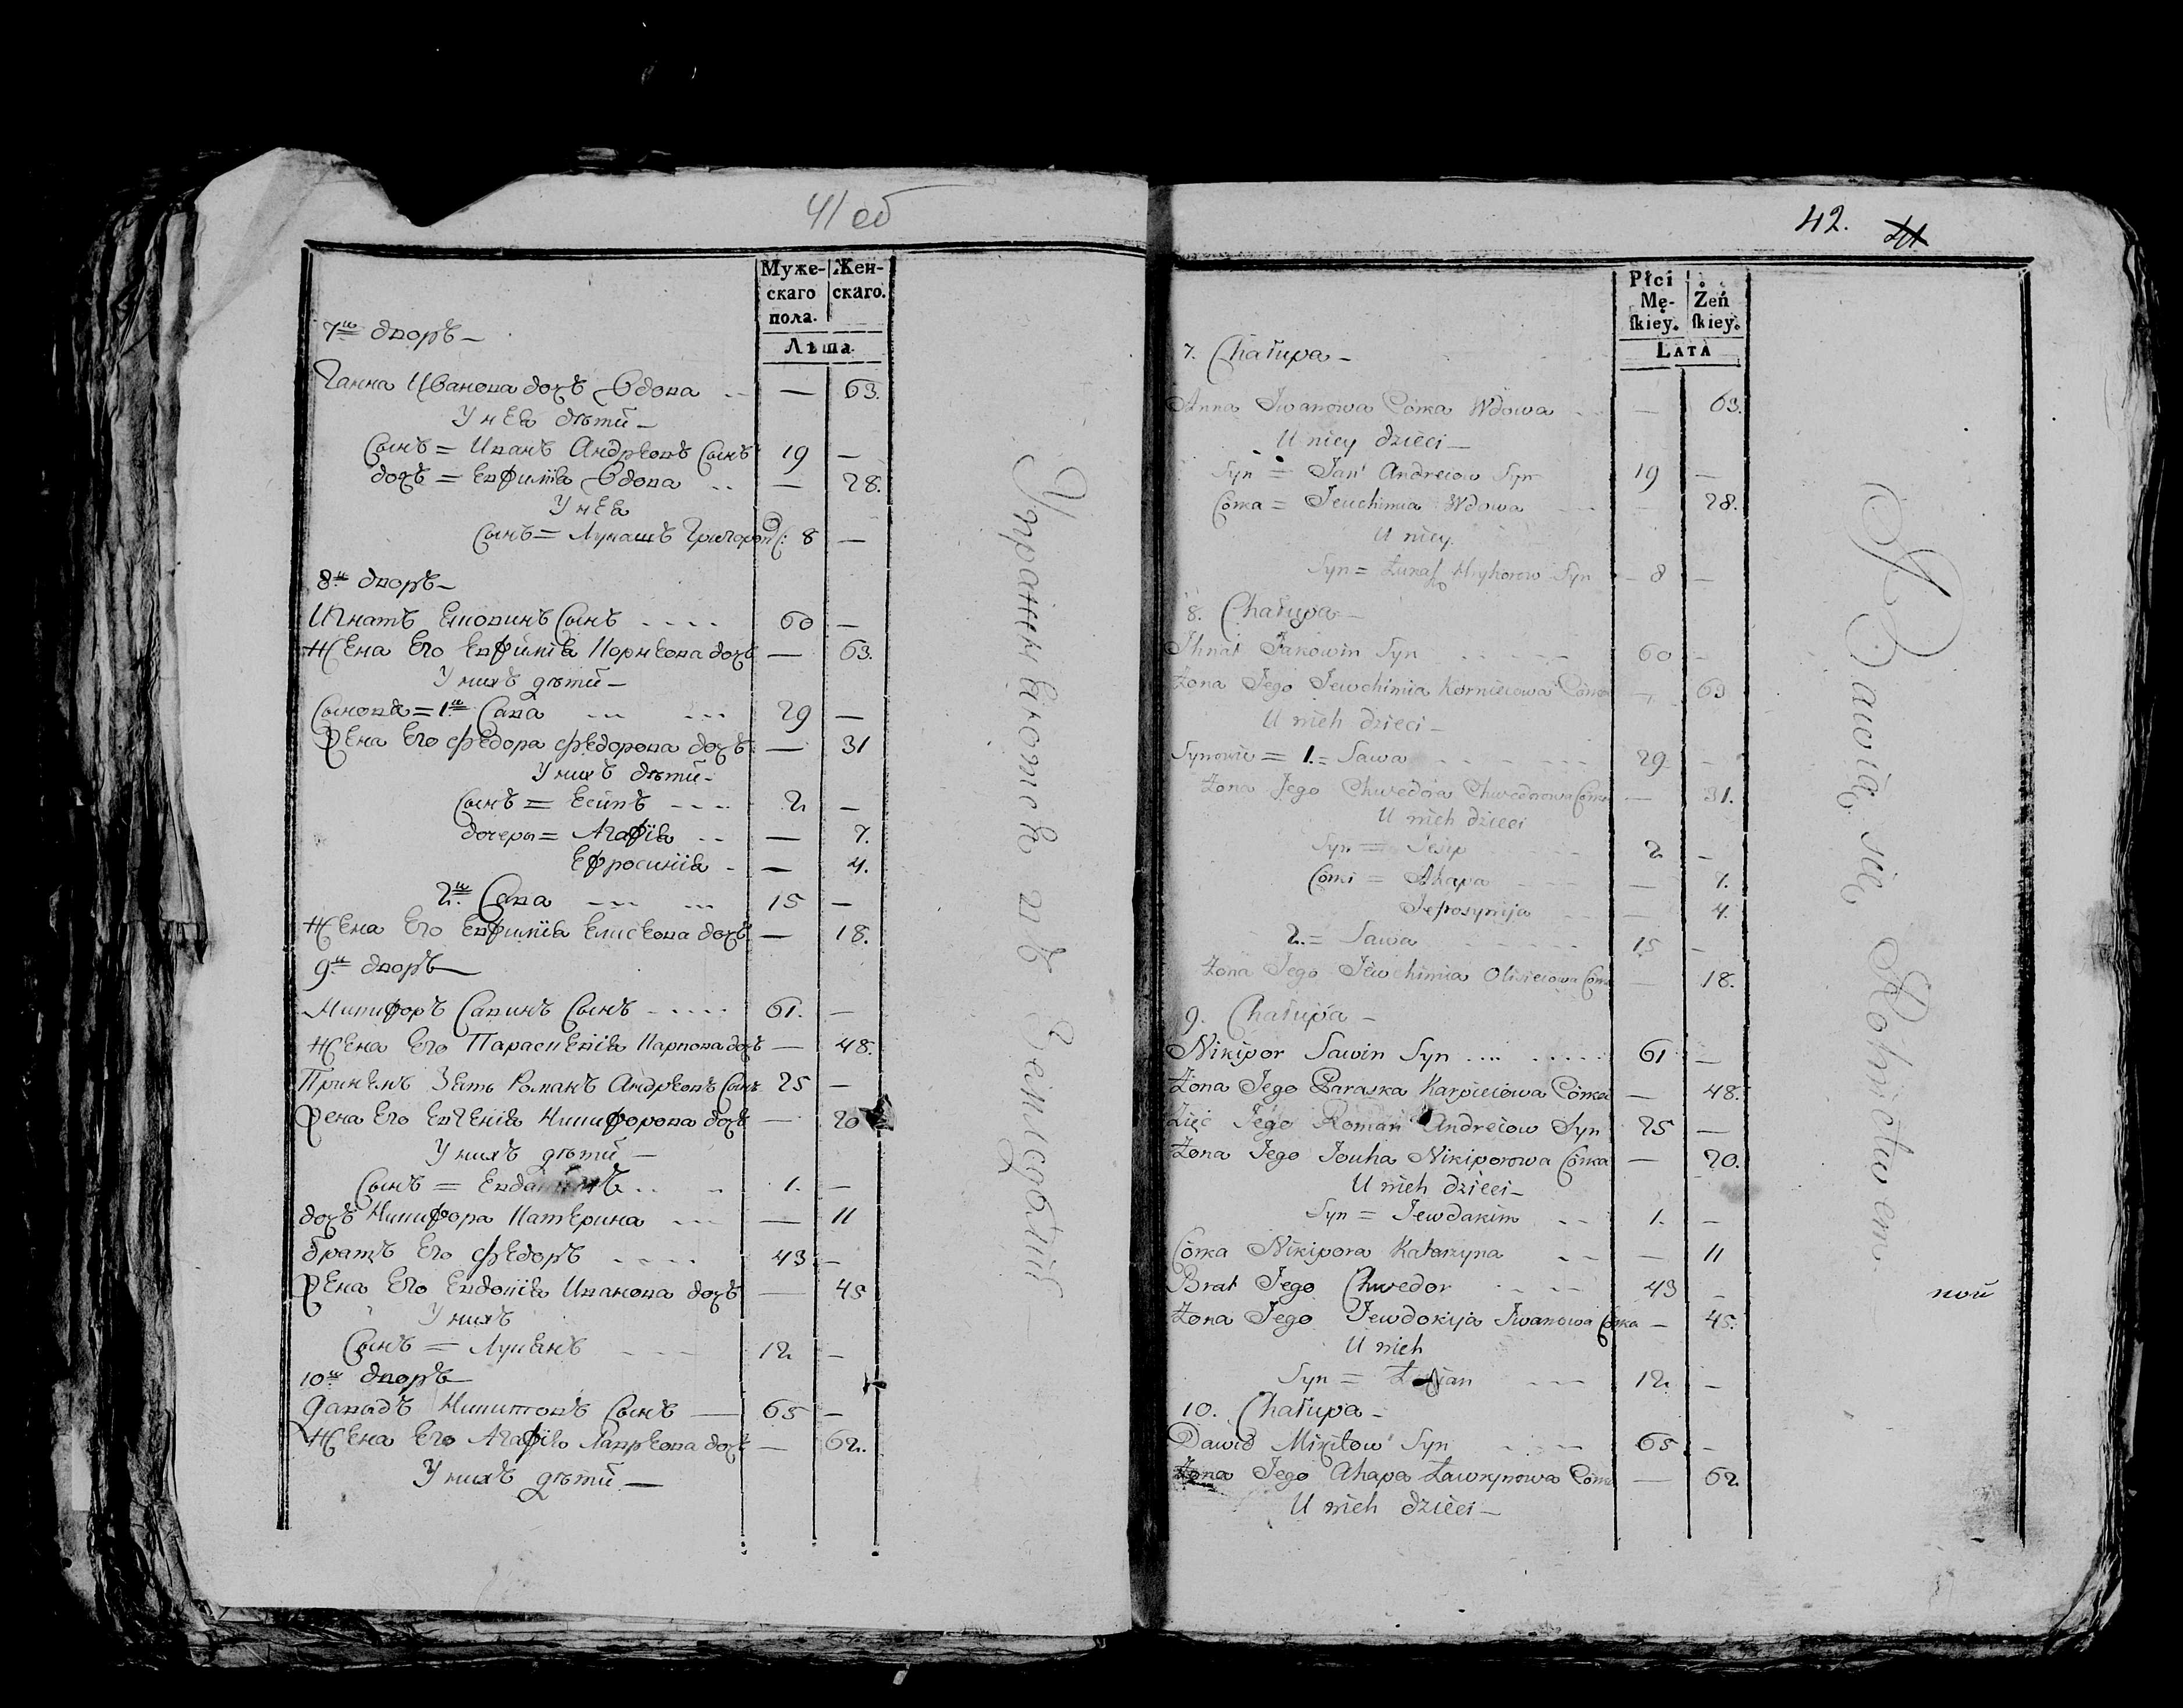 41 об
Муже-
скаго
пола.
Жен-
скаго.
Лѣта.
7й дворъ —
Ганна Иванова дочь Вдова -- — 63.
У нея дѣти —
Сынъ = Иванъ Андрѣевъ Сынъ 19 —
дочь = Евфимія Вдова .. — 28.
У нея
Сынъ = Лукашъ Григоровъ С: 8 —
8й дворъ —
Игнатъ Яковинъ Сынъ - - - - 60 —
Жена Его Евфимія Корнѣева дочь — 63.
У нихъ дѣти —
Сыновья = 1й Сава --- --- 29 —
Жена Его Федора Федорова дочь — 31
У нихъ дѣти -
Сынъ = Есипъ - - - - 2 —
дочери = Агафія - - — 7.
Ефросинія - — 4.
2й Сава --- --- 15 —
Жена Его Евфимія Елисѣева дочь — 18.
9й дворъ —
Никифоръ Савинъ Сынъ - - - - - 61. —
Жена Его Параскевія Карпова дочь — 48.
Пріемъ Зять Романъ Андрѣевъ Сынъ 25 —
Жена Его Евгенія Никифорова дочь — 20
У нихъ дѣти —
Сынъ = 1. —
дочь Никифора Катерина --- — 11
братъ Его Федоръ - - - - 43 —
Жена Его Евдокія Иванова дочь — 45
У нихъ
Сынъ = Лукянъ - - - 12 —
10й дворъ —
Давыдъ Никитовъ Сынъ — 65 —
Жена Его Агафія Лаврѣова дочь — 62.
У нихъ дѣти —
Упражняются въ
42.
41
Płci
Mę-
ſkiey.
Żeń
ſkiey.
LATA
7. Chałupa —
Anna Iwanowa Córka Wdowa - - — 63.
U niey dzieci —
Syn = Jan Andreiow Syn 19 —
Córka = Jeuchimia Wdowa - - - — 28.
U niey.
Syn = Łukasz Hryhorow Syn — 8 —
8. Chałupa —
Ihnat Jakowin Syn - - - - - 60 —
Żona Jego Jewchimia Kornieiowa Córka — 63
U nich dzieci —
Synowie = 1. = Sawa - - - - - - 29. —
Żona Jego Chwedora Chwedorowa Córka — 31.
U nich dzieci
Syn = Jesip - - - - 2 —
Córki = Ahapa - - - — 7.
Jefrosynija - - — 4.
2. = Sawa - - - - - - 15 —
Żona Jego Jewchimia Olisieiowa Córka — 18.
9. Chałupa —
Nikipor Sawin Syn .... ..... 61 —
Żona Jego Paraska Karpieiowa Córka — 48.
Zięć Jego Roman Andreiow Syn 25 —
Żona Jego Jouha Nikiporowa Córka — 20.
U nich dzieci —
Syn = Jewdakim - - 1. —
Córka Nikipora Katarzyna - - — 11
Brat Jego Chwedor - - - - 43 —
Żona Jego Jewdokija Iwanowa Córka — 45.
U nich
Syn = - - - 12. —
10. Chałupa —
Dawid Mikitow Syn - - - - 65 —
Żona Jego Ahapa Ławrynowa Córka — 62
U nich dzieci —
Bawią się Rolnictwem.